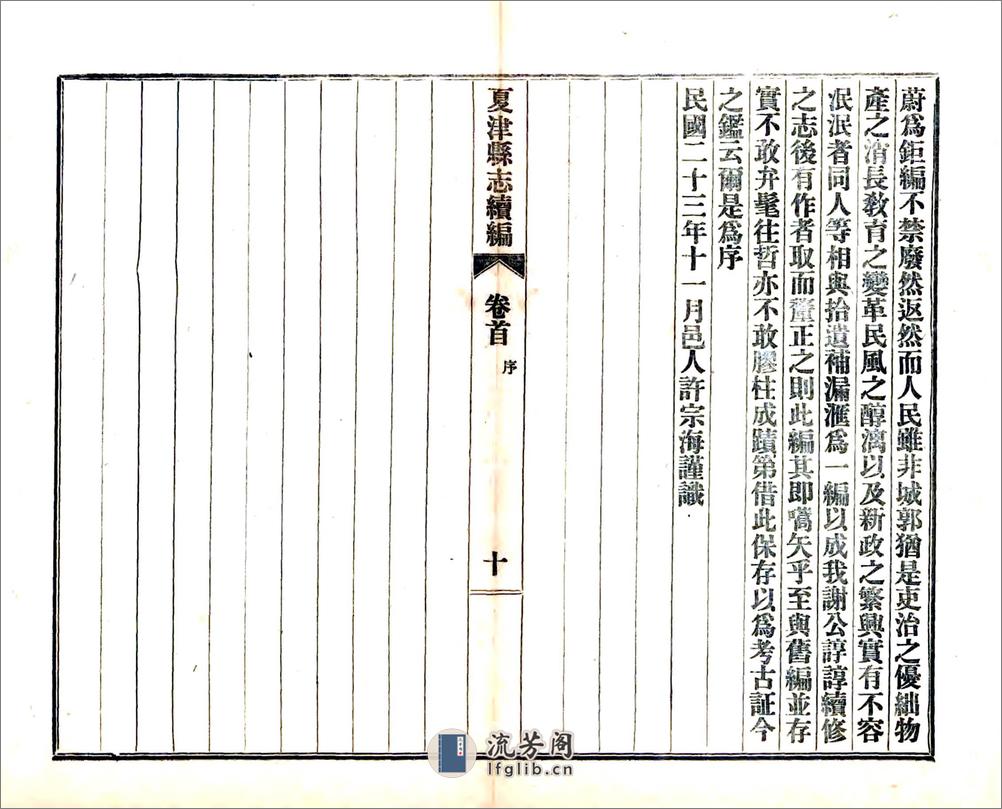 蔚爲鉅編不禁廢然返然而人民雖非城郭猶是吏治之優絀物
產之消長敎育之變革民風之醇漓以及新政之繁興實有不容
泯泯者同人等相與拾遺補漏滙爲一編以成我謝公諄諄續修
之志後有作者取而釐正之則此編其即嚆矢乎至與舊編並存
實不敢弁髦往哲亦不敢膠柱成蹟第借此保存以爲考古証今
之鑑云爾是爲序
民國二十三年十一月邑人許宗海謹識
夏津縣志續編
卷首
序
十
流芳阁
lfglib.cn